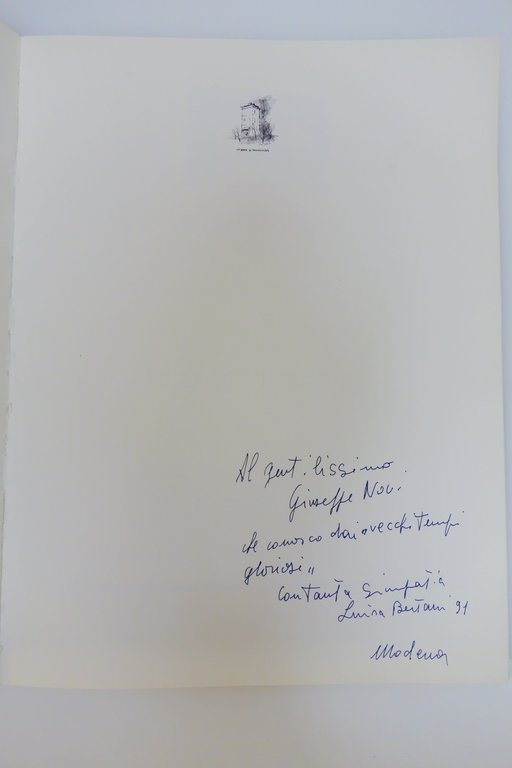 Al gentilissimo
Giuseppe Nov.
che conosco dai "vecchi tempi
gloriosi"
Con tanta simpatia
Luisa Bertani 91
Modena